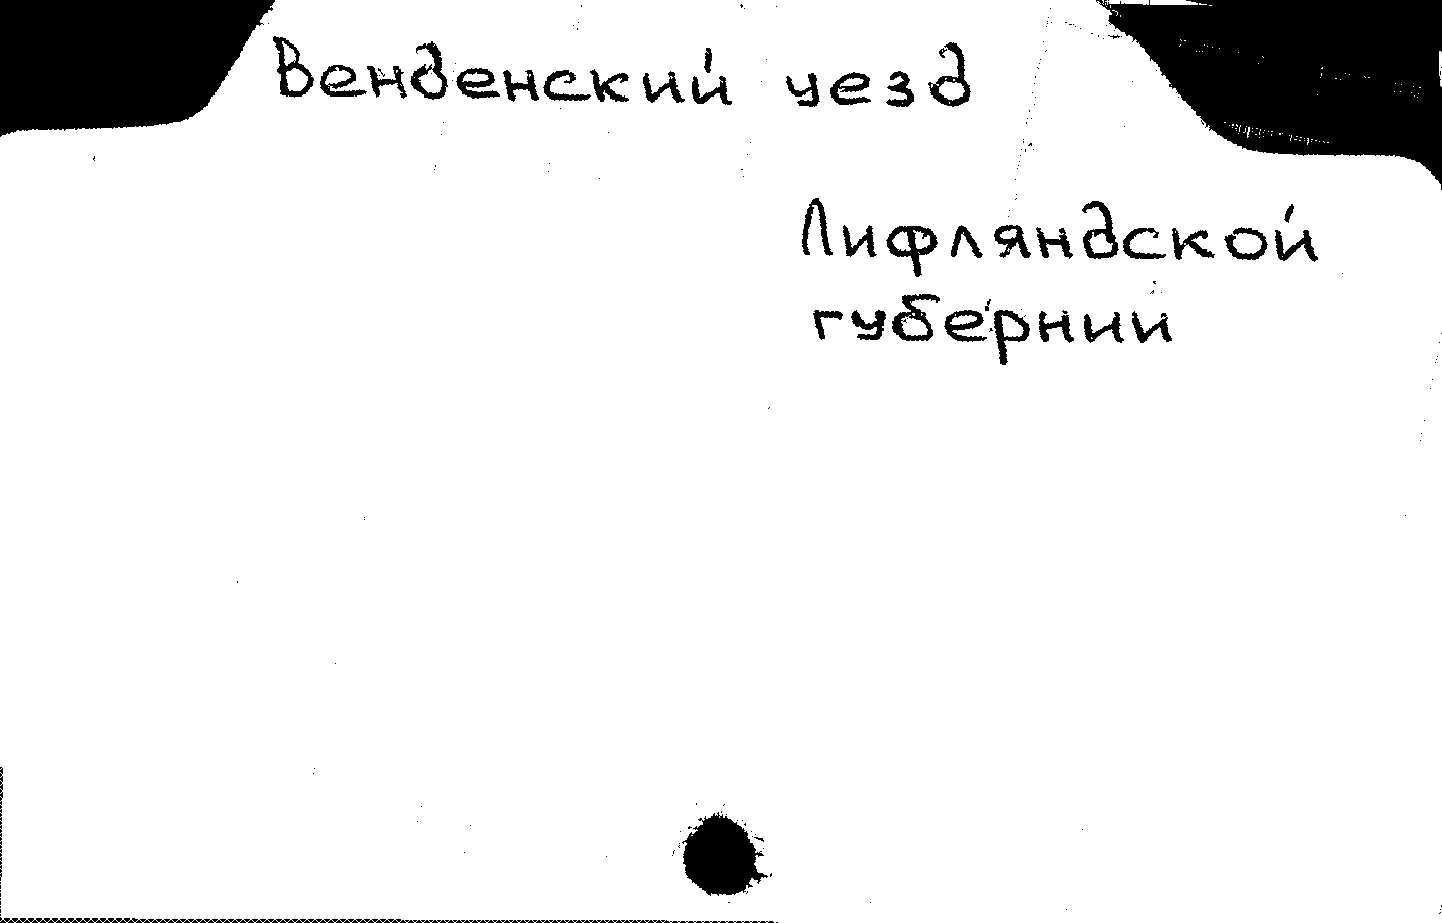 Венденский уезд
Лифляндской
губернии